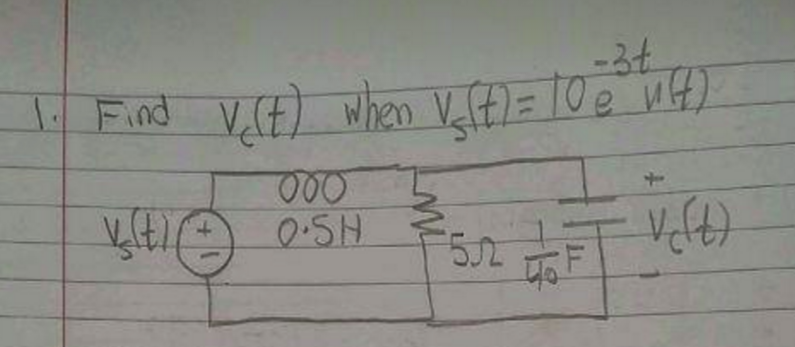 1. Find V_c(t) when V_s(t) = 10 e^{-3t} u(t)
000
+
V_s(t) + -
0.5H
5Ω
1/40 F
V_c(t)
-